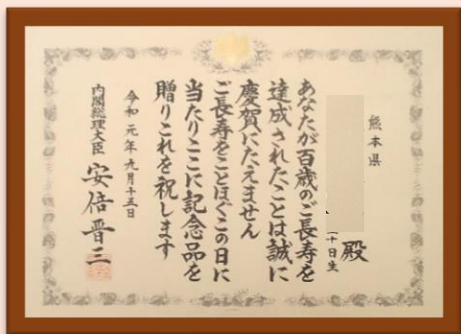 熊本県
殿
十日生
あなたが百歳のご長寿を
達成されたことは誠に
慶賀にたえません
ご長寿をことほぐこの日に
当たりここに記念品を
贈りこれを祝します
令和元年九月十五日
内閣総理大臣 安倍晋三